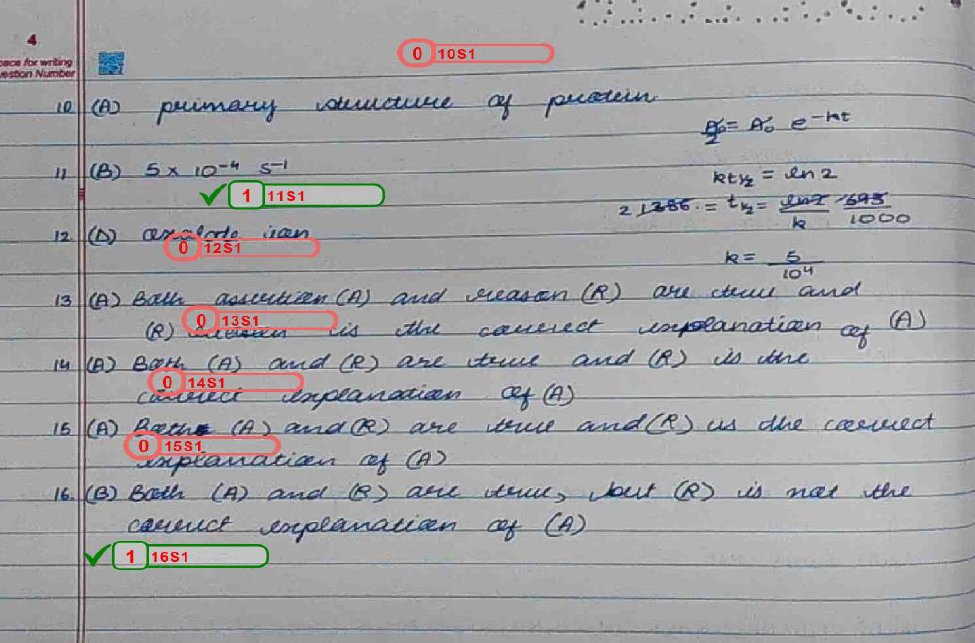 4
pace for writing
estion Number
0 10S1
10 (A) primary structure of protein
A₀/2 = A₀ e^-kt
11 (B) 5 x 10⁻⁴ s⁻¹
kt½ = ln 2
1 11S1
= t½ = ln2/k 693/1000
12 (D) ion
0 12S1
k = 5/10⁴
13 (A) Both assertion (A) and reason (R) are true and
0 13S1
(R) is the correct explanation of (A)
14 (A) Both (A) and (R) are true and (R) is the
0 14S1
correct explanation of (A)
15 (A) Both (A) and (R) are true and (R) is the correct
0 15S1
explanation of (A)
16. (B) Both (A) and (R) are true, but (R) is not the
correct explanation of (A)
1 16S1